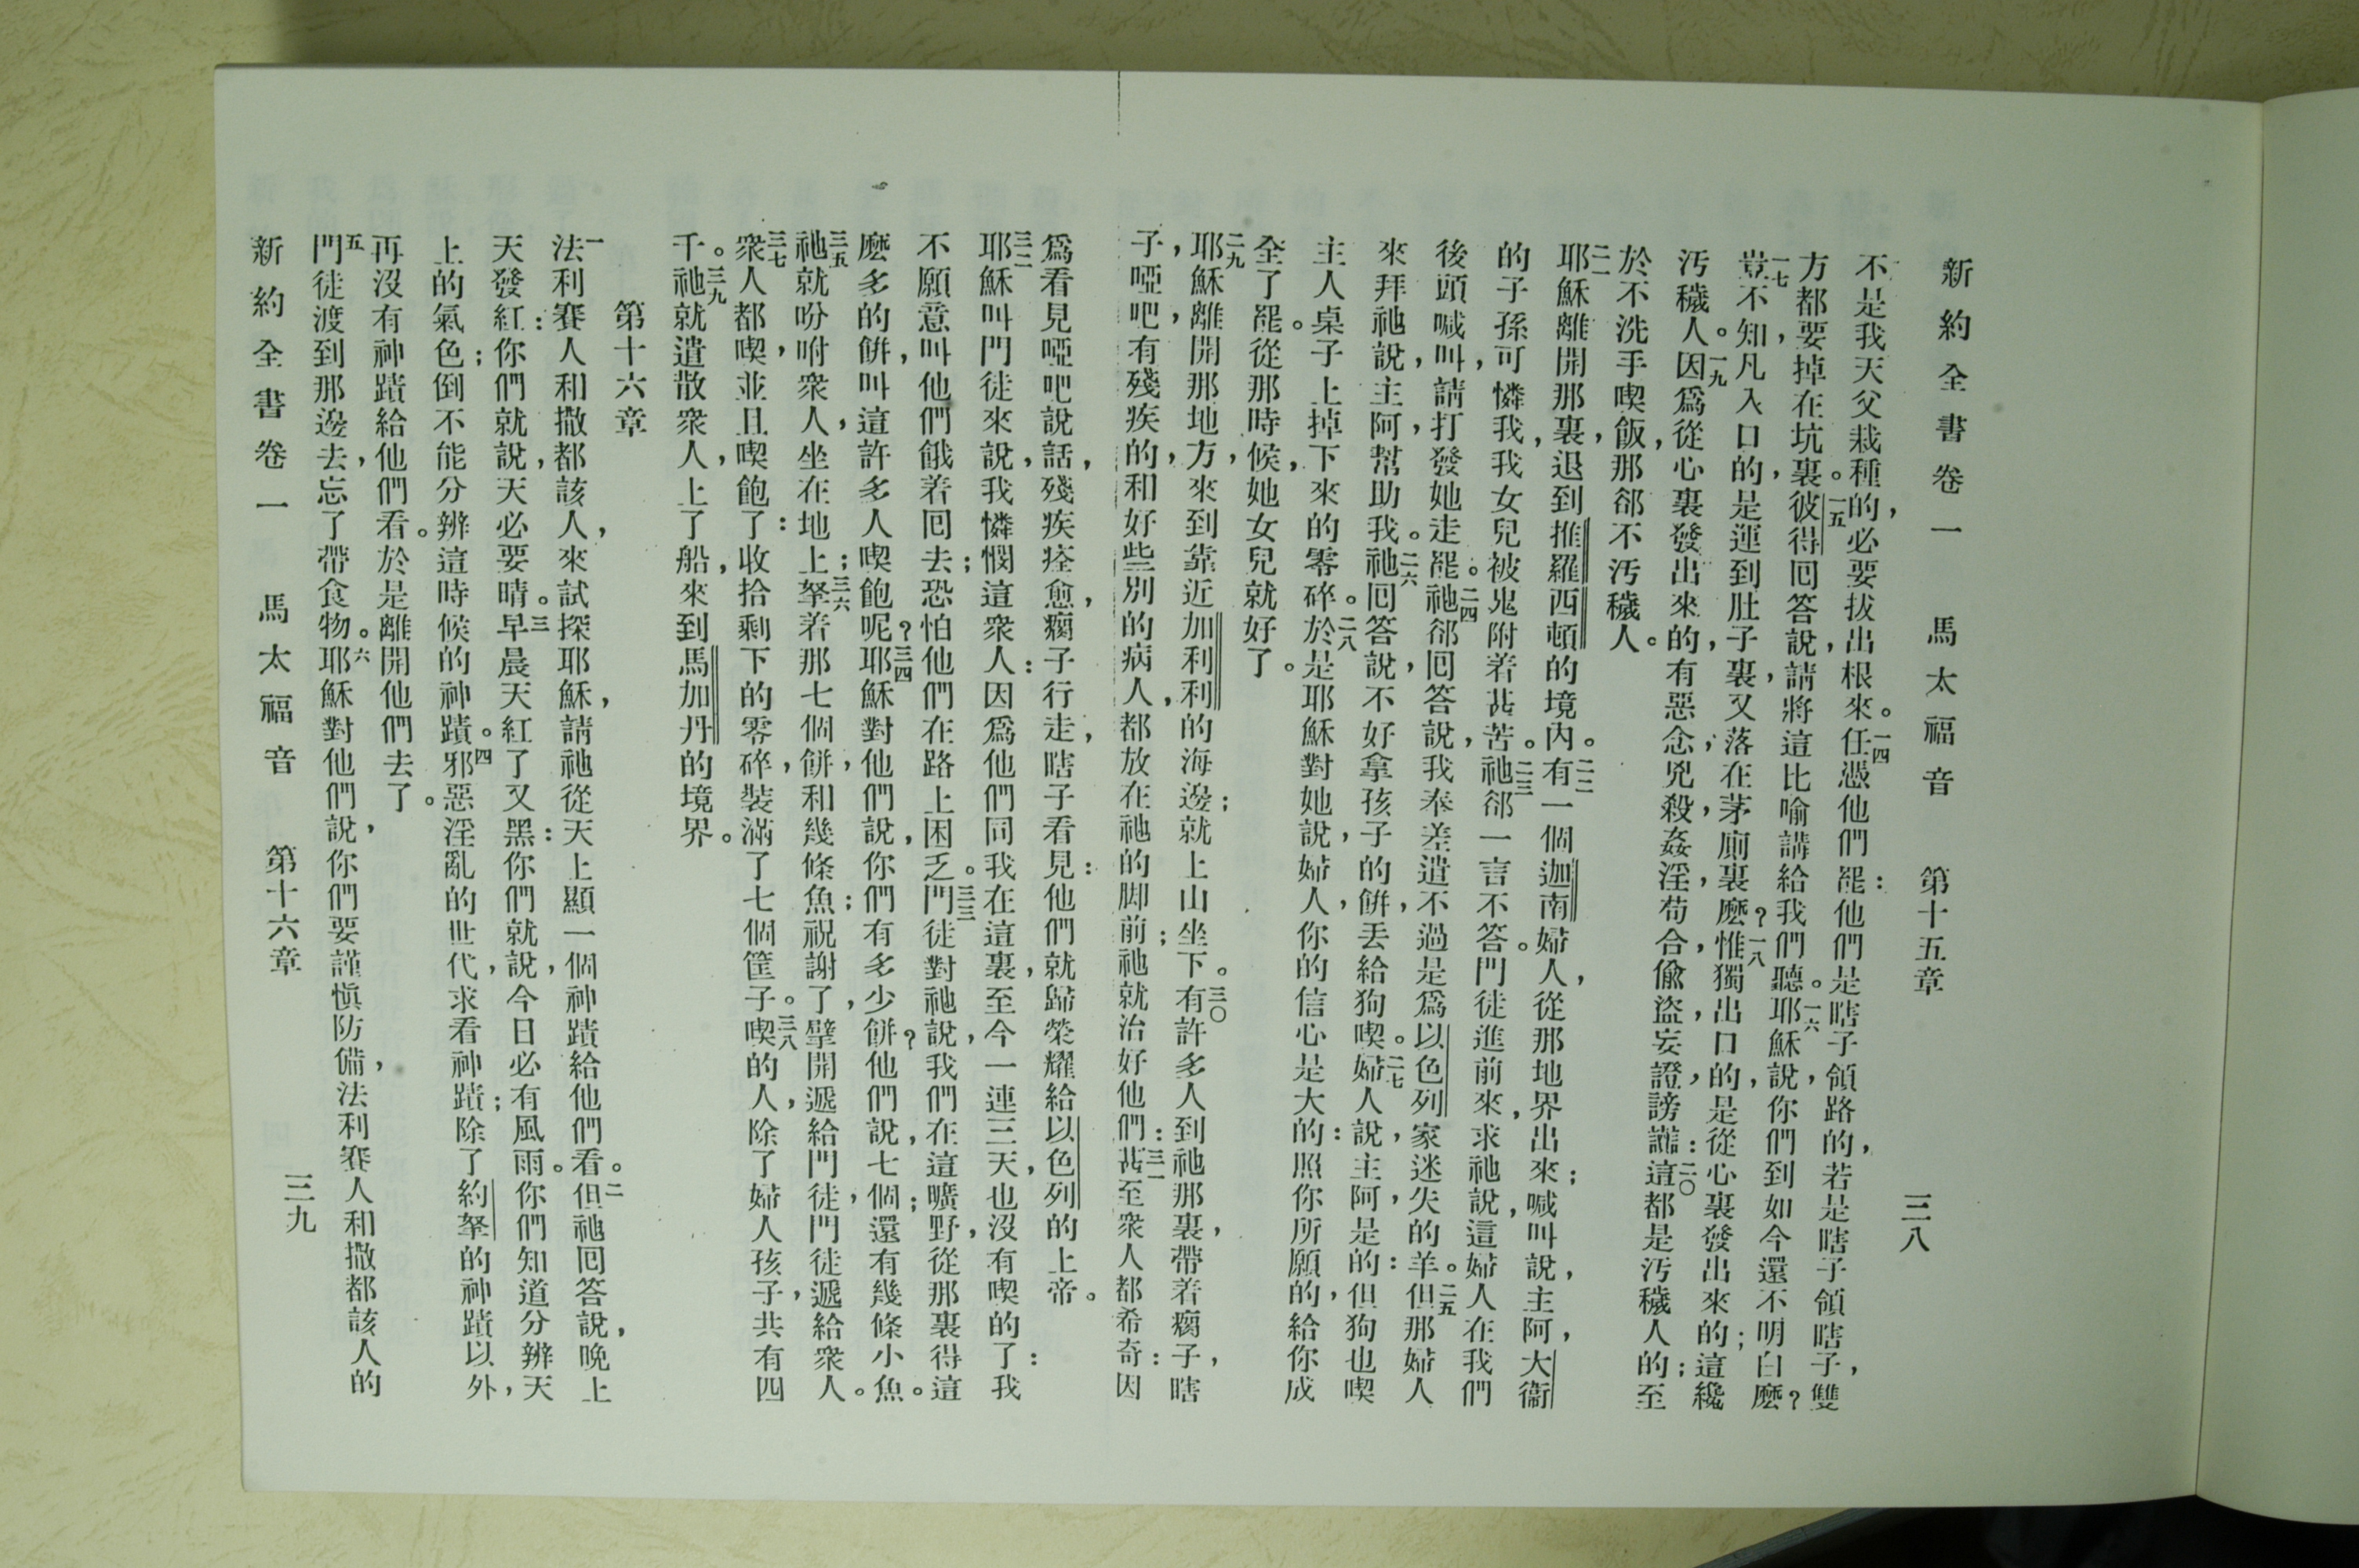 新約全書卷一　馬太福音　第十五章　三八
不是我天父栽種的，必要拔出根來。一四任憑他們罷：他們是瞎子領路的，若是瞎子領瞎子，雙
方都要掉在坑裏。一五彼得囘答說，請將這比喻講給我們聽。一六耶穌說，你們到如今還不明白麼？
一七豈不知，凡入口的，是運到肚子裏，又落在茅廁裏麼？一八惟獨出口的，是從心裏發出來的；這纔
汚穢人。一九因爲從心裏發出來的，有惡念，兇殺，姦淫，苟合，偸盜，妄證，謗讟：二〇這都是汚穢人的；至
於不洗手喫飯，那卻不汚穢人。
二一耶穌離開那裏，退到推羅西頓的境內。二二有一個迦南婦人，從那地界出來；喊叫說，主阿，大衞
的子孫，可憐我，我女兒被鬼附着甚苦。二三祂卻一言不答。門徒進前來，求祂說，這婦人在我們
後頭喊叫，請打發她走罷。二四祂卻囘答說，我奉差遣，不過是爲以色列家迷失的羊。二五但那婦人
來拜祂說，主阿，幫助我。二六祂囘答說，不好拿孩子的餠，丟給狗喫。二七婦人說，主阿，是的：但狗也喫
主人桌子上掉下來的零碎。二八於是耶穌對她說，婦人，你的信心是大的：照你所願的，給你成
全了罷。從那時候，她女兒就好了。
二九耶穌離開那地方，來到靠近加利利的海邊；就上山坐下。三〇有許多人到祂那裏，帶着瘸子，瞎
子，啞吧，有殘疾的，和好些別的病人，都放在祂的脚前；祂就治好他們：三一甚至衆人都希奇：因
爲看見啞吧說話，殘疾痊愈，瘸子行走，瞎子看見：他們就歸榮耀給以色列的上帝。
三二耶穌叫門徒來說，我憐憫這衆人：因爲他們同我在這裏，至今一連三天，也沒有喫的了：我
不願意叫他們餓着囘去；恐怕他們在路上困乏。三三門徒對祂說，我們在這曠野，從那裏得這
麼多的餠，叫這許多人喫飽呢？三四耶穌對他們說，你們有多少餠？他們說，七個；還有幾條小魚。
三五祂就吩咐衆人，坐在地上；三六拏着那七個餠，和幾條魚；祝謝了，擘開遞給門徒，門徒遞給衆人。
三七衆人都喫，並且喫飽了：收拾剩下的零碎，裝滿了七個筐子。三八喫的人，除了婦人孩子，共有四
千。三九祂就遣散衆人，上了船，來到馬加丹的境界。
第十六章
一法利賽人和撒都該人，來試探耶穌，請祂從天上顯一個神蹟給他們看。二但祂囘答說，晚上
天發紅：你們就說，天必要晴。三早晨天紅了又黑：你們就說，今日必有風雨。你們知道分辨天
上的氣色；倒不能分辨這時候的神蹟。四邪惡淫亂的世代，求看神蹟；除了約拏的神蹟以外，
再沒有神蹟給他們看。於是離開他們去了。
五門徒渡到那邊去，忘了帶食物。六耶穌對他們說，你們要謹愼防備，法利賽人和撒都該人的
新約全書卷一　馬太福音　第十六章　三九